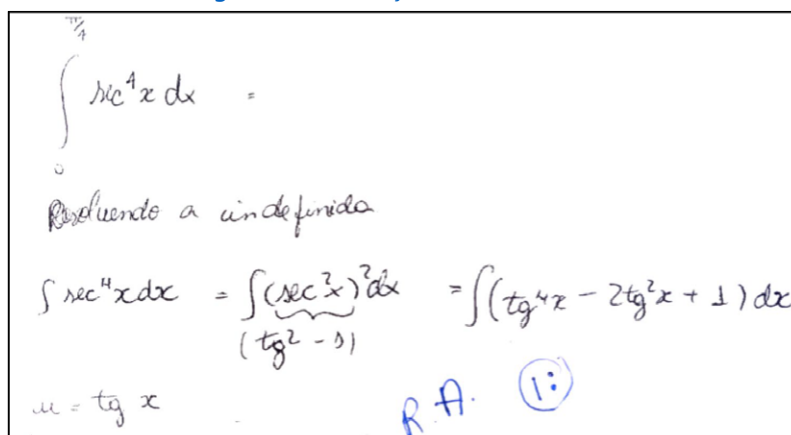 π/4
∫ sec⁴x dx =
0
Resolvendo a indefinida
∫ sec⁴x dx = ∫(sec²x)² dx = ∫(tg⁴x - 2tg²x + 1) dx
(tg² - 1)
u = tg x
R.A. 1: